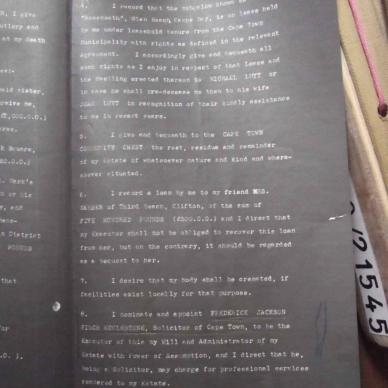 , I give
4. I record that the bungalow known as
"Rosebank", Glen Beach, Camps Bay, is on lease held
by me under leasehold tenure from the Cape Town
Municipality with rights as defined in the relevant
Agreement. I accordingly give and bequeath all
such rights as I enjoy in respect of that lease and
the dwelling erected thereon to MICHAEL LUYT or
in case he shall pre-decease me then to his wife
JOAN LUYT in recognition of their kindly assistance
to me in recent years.
5. I give and bequeath to the CAPE TOWN
COMMUNITY CHEST the rest, residue and remainder
of my Estate of whatsoever nature and kind and where-
soever situated.
6. I record a loan by me to my friend MRS.
of Third Beach, Clifton, of the sum of
FIVE HUNDRED POUNDS (£500.0.0) and I direct that
my Executor shall not be obliged to recover this loan
from her, but on the contrary, it should be regarded
as a bequest to her.
7. I desire that my body shall be cremated, if
facilities exist locally for that purpose.
8. I nominate and appoint FREDERICK JACKSON
Solicitor of Cape Town, to be the
Executor of this my Will and Administrator of my
Estate with Power of Assumption, and I direct that he,
being a Solicitor, may charge for professional services
rendered to my Estate.
at my death
sister,
me,
District
POUNDS
that
for
21545